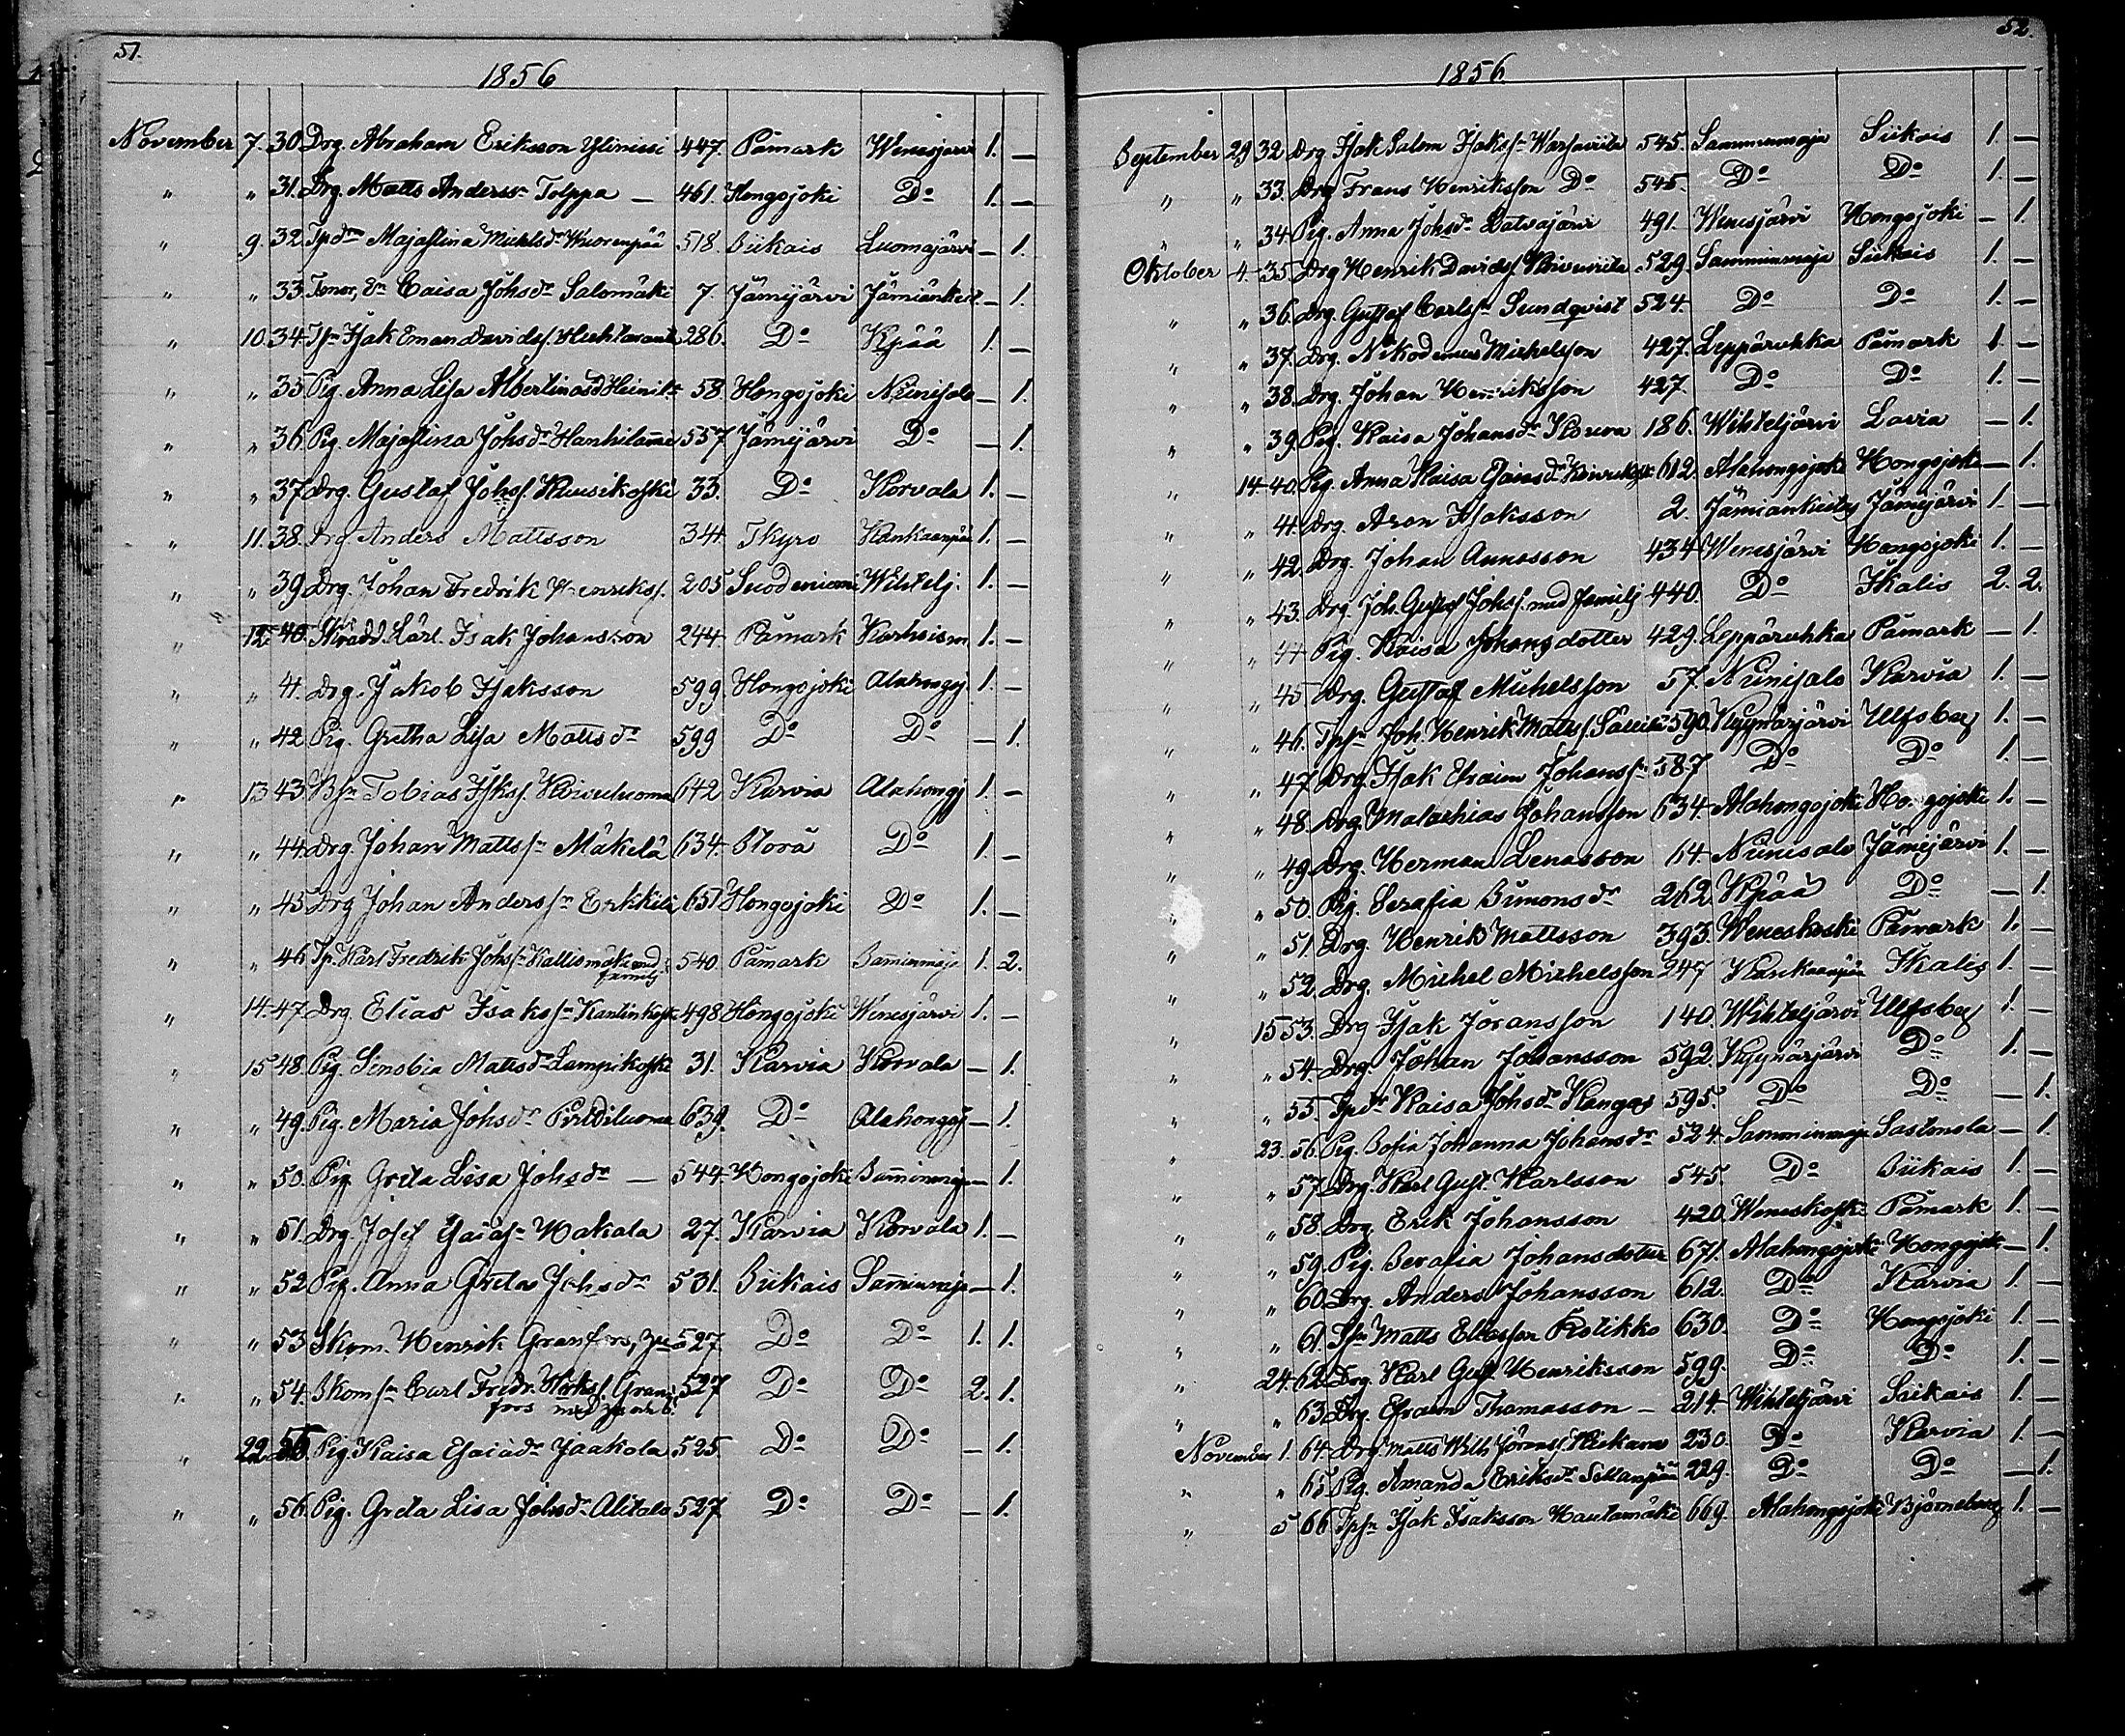 51.
1856
November 7. 30 Drg. Abraham Eriksson Ylinissi 447. Påmark Wenesjärvi 1. —
" " 31. Drg. Matts Anderss:n Tolppa — 461. Hongojoki D:o 1. —
" 9. 32 Tpd:r Majastina Michlsd:r Wuorenpää 518. Siikais Luomajärvi — 1.
" " 33. Caisa Johsd:r Salomäki 7. Jämijärvi Jämiänkeit — 1.
" 10. 34. Tps:n Isak Eman Davids. 286. D:o Kpää 1. —
" " 35 Pig. Anna Lisa Albertinasd 58 Hongojoki Niinisalo — 1.
" " 36. Pig. Majastina Johsd:r Hanhilamme 557 Jämijärvi D:o — 1.
" " 37 Drg. Gustaf Johs. Kuusikoski 33. D:o Korvala 1. —
" 11. 38. Drg Anders Mattsson 344. Tkyro Kankaanpää 1. —
" " 39 Drg. Johan Fredrik Henrikss. 205 Suodeniemi Wihtelj. 1. —
" 12 40. Skradd.Lärl. Isak Johansson 244 Påmark Karhoism 1. —
" " 41. Drg. Jakob Isaksson 599 Hongojoki Alahongoj 1. —
" " 42 Pig. Gretha Lisa Mattsd:r 599 D:o D:o — 1.
" 13 43. Bs:n Tobias Isks. Koivuluoma 642 Karvia Alahongj 1. —
" " 44. Drg. Johan Mattss:n Mäkelä 634. Storå D:o 1. —
" " 45 Drg Johan Anderss:n Erkkilä 651 Hongojoki D:o 1. —
" " 46 Tp. Karl Fredrik Johs:n Kallismäki med familj 540. Påmark Samminmaja 1. 2.
" 14. 47 Drg. Elias Isakss:n 498 Hongojoki Wenesjärvi 1. —
" 15 48. Pig. Senobia Mattsd:r Lampikoski 31. Karvia Korvala — 1.
" " 49. Pig. Maria Johsd:r 639. D:o Alahongoj — 1.
" " 50. Pig Greta Lisa Johsd:r — 544. Hongojoki Samminmaja — 1.
" " 51. Drg. Josef Esaias:n Hakala 27. Karvia Korvala 1. —
" " 52 Pig. Anna Greta Johsd:r 531. Siikais Samminmaja — 1.
" " 53 Skom. Henrik Granfors, 527. D:o D:o 1. 1.
" " 54. Skoms:n Carl Fredr. Hrks. Granfors med 527 D:o D:o 2. 1.
" 22 55 Pig. Kaisa Esaiad:r Jaakola 525. D:o D:o — 1.
" " 56. Pig. Greta Lisa Johsd:r Alitalo 527 D:o D:o — 1.
52.
1856
September 29 32 Drg Isak Salom Isakss:n 545. Samminmaja Siikais 1. —
" " 33. Drg Frans Henriksson D:o 545. D:o D:o 1. —
" " 34 Pig. Anna Johsd:r Latvajärvi 491. Wenesjärvi Hongojoki — 1.
Oktober 4. 35 Drg Henrik Davids. 529. Samminmaja Siikais 1. —
" " 36. Drg. Gustaf Carlss:n Sundqvist 524. D:o D:o 1. —
" " 37. Drg. Nikodemus Michelsson 427. Leppäruhka Påmark 1. —
" " 38. Drg. Johan Henriksson 427. D:o D:o 1. —
" " 39. Pig. Kaisa Johansd:r Korva 186. Wihteljärvi Lavia — 1.
" 14. 40. Pig. Anna Kaisa Esaiasd:r 612. Alahongojoki Hongojoki — 1.
" " 41. Drg. Aron Isaksson 2. Jämiankeitas Jämijärvi 1. —
" " 42. Drg. Johan Annasson 434 Wenesjärvi Hongojoki 1. —
" " 43. Drg. Joh. Gustaf Johss. med familj 440. D:o Ikalis 2. 2.
" " 44 Pig. Kaisa Johansdotter 429. Leppäruhka Påmark — 1.
" " 45 Drg. Gustaf Michelsson 57. Niinisalo Karvia 1. —
" " 46. Tps:n Joh. Henrik Mattss. 590. Kyynärjärvi Ulfsby 1. —
" " 47 Drg. Isak Efraim Johanss:n 587 D:o D:o 1. —
" " 48. Drg. Malachias Johansson 634. Alahongojoki Hongojoki 1. —
" " 49. Drg. Herman Lenasson 64. Niinisalo Jämijärvi 1. —
" " 50. Pig. Serafia Simonsd:r 262. Kpää D:o — 1.
" " 51. Drg. Henrik Mattsson 393. Weneskoski Påmark 1. —
" " 52. Drg. Michel Michelsson 347 Kankaanpää Ikalis 1. —
" 15 53. Drg Isak Joransson 140. Wihteljärvi Ulfsby 1. —
" " 54. Drg. Johan Johansson 592. Kyynärjärvi D:o 1. —
" " 55. Tpd:r Kaisa Johsd:r Kangas 595. D:o D:o — 1.
" 23. 56. Pig. Sofia Johanna Johansd:r 524. Samminmaja Sastmola — 1.
" " 57. Drg. Karl Gust. Karlsson 545. D:o Siikais 1. —
" " 58. Drg. Erik Johansson 420. Weneskoski Påmark 1. —
" " 59. Pig. Serafia Johansdotter 671. Alahongojoki Hongojoki — 1.
" " 60. Drg. Anders Johansson 612. D:o Karvia 1. —
" " 61. Tps:n Matts Eliesson Kolikko 630. D:o Hongojoki 1. —
" 24. 62. Drg. Karl Gust Henriksson 599. D:o D:o 1. —
" " 63. Drg. Efraim Thomasson — 214 Wihteljärvi Siikais 1. —
November 1. 64. Drg. Matts Wilh. 230. D:o Karvia 1. —
" " 65. Pig. Amanda Eriksd:r Sillanpää 229. D:o D:o — 1.
" 5 66 Tps:n Isak Isaksson Hautamäki 669. Alahongojoki Björneborg 1. —